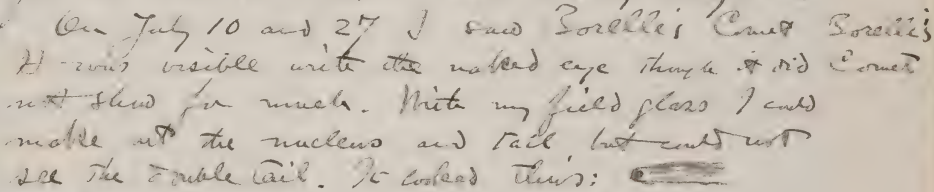 On July 10 and 27 I saw Borelli's Comet Borelli's
It was visible with the naked eye though it did Comet
not show for much. With my field glass I could
make out the nucleus and tail but could not
see the double tail. It looked thus: